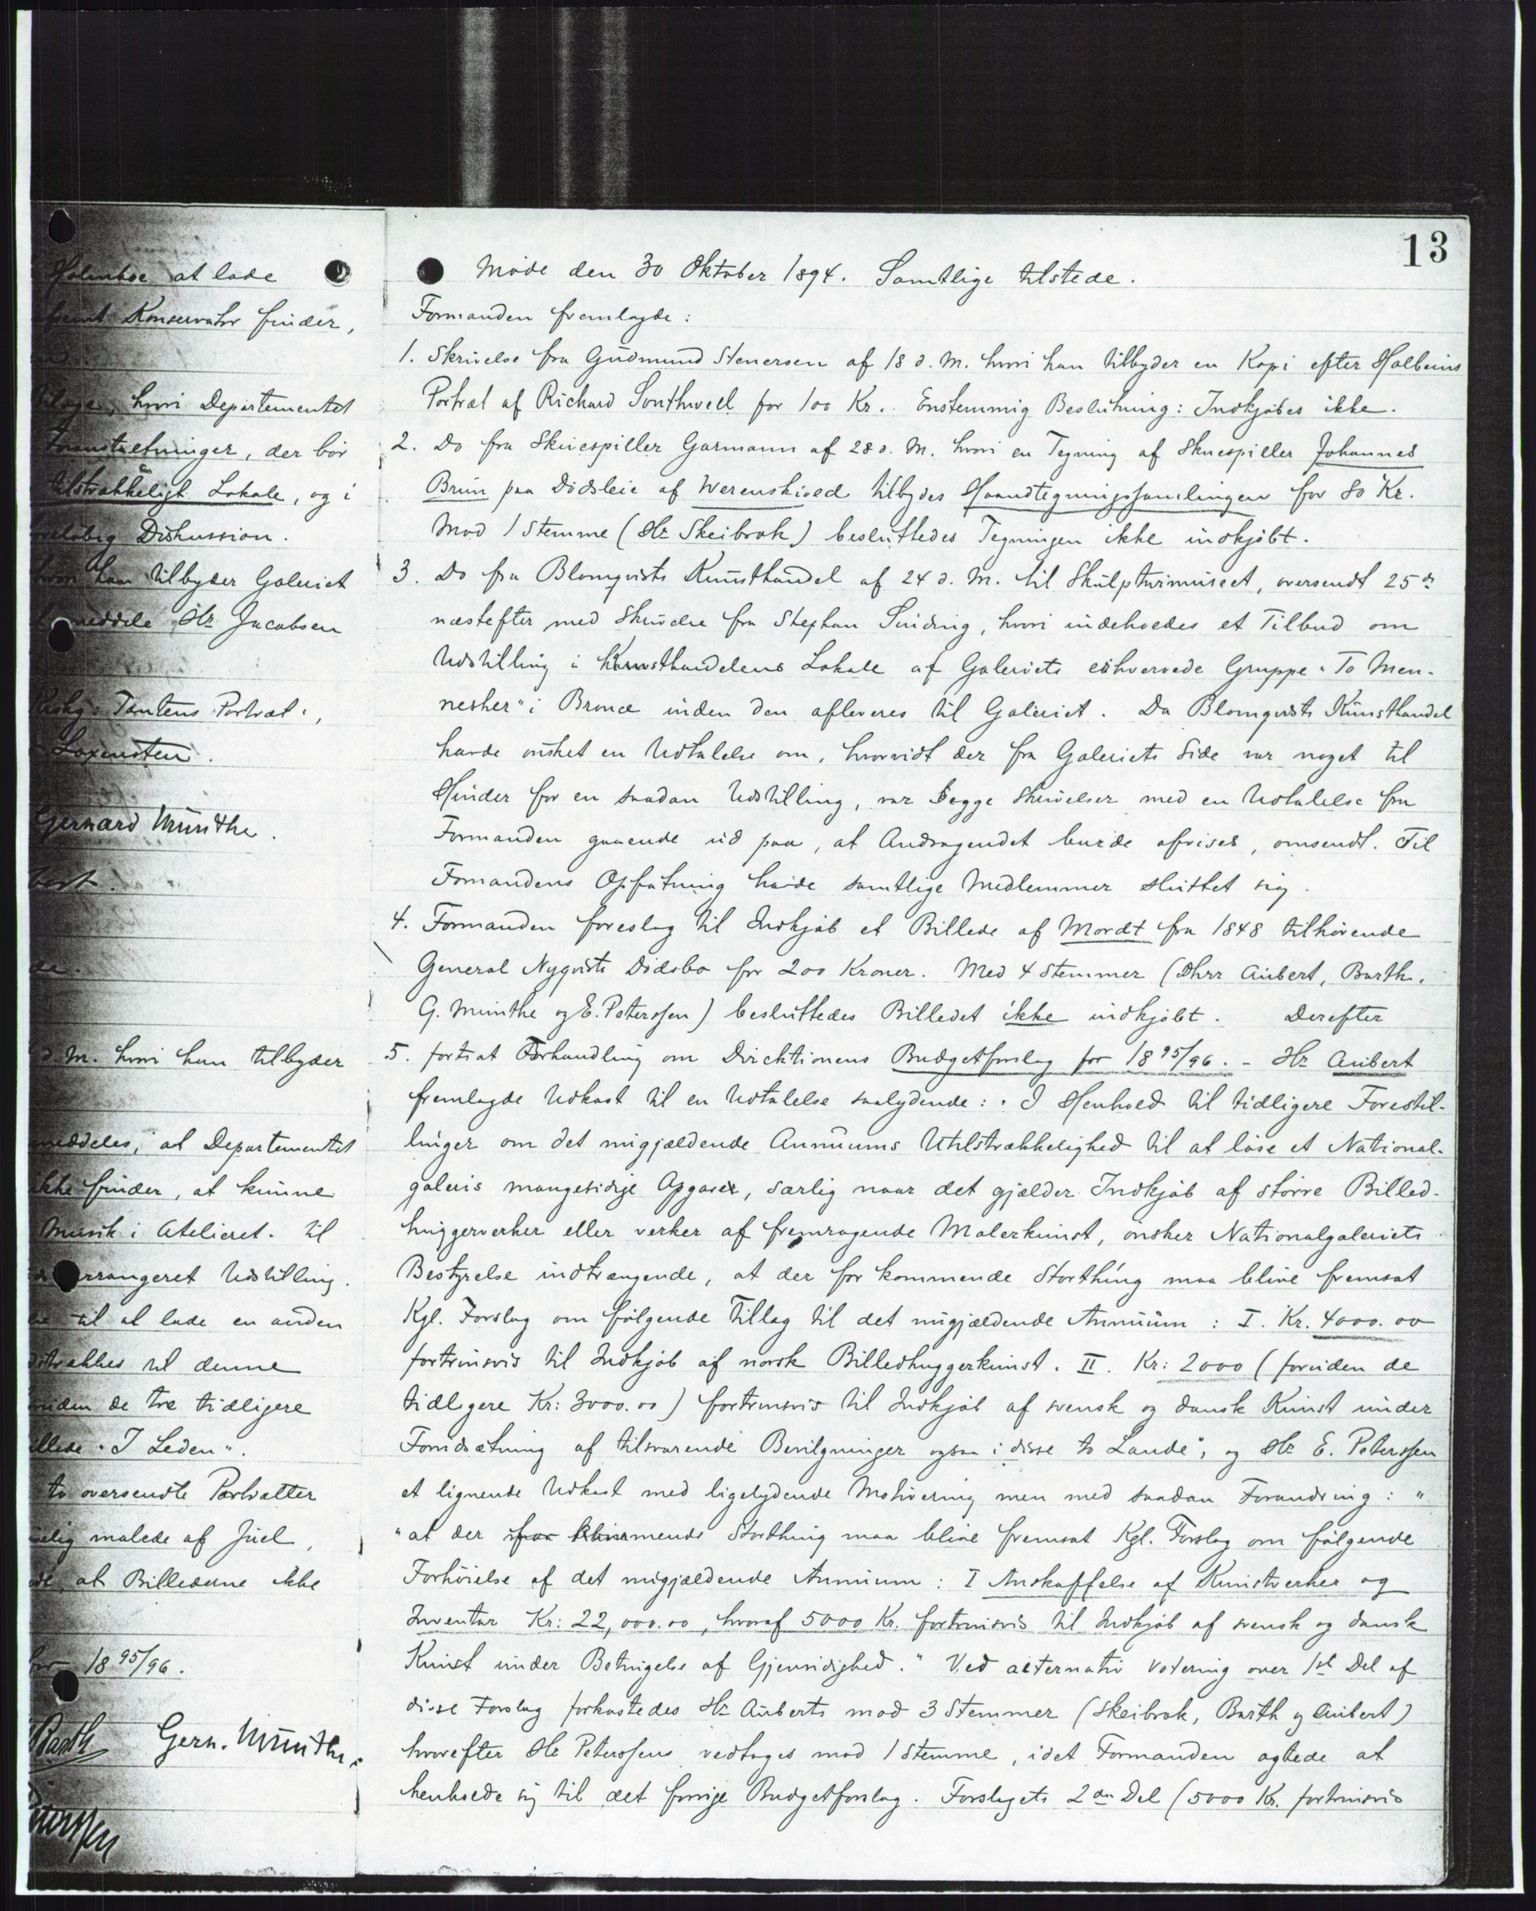 Holmboe at lade
Konservator finder,
hvori Departementet
Foranstaltninger, der bør
tilstrækkeligt Lokale, og i
foreløbig Diskussion.
hvori han tilbyder Galeriet
meddele Hr Jacobsen
Tantens Portræt",
Laxensten.
Gerhard Munthe.
d. M. hvori han tilbyder
meddeles, at Departementet
ikke finder, at kunne
Musik i Atelieret. til
arrangeret Udstilling.
til at lade en anden
til denne
de tre tidligere
"I Leden".
to oversendte Portrætter
malede af Juel,
at Billederne ikke
18 95/96.
Barth Gerh. Munthe.
13
Møde den 30 Oktober 1894. Samtlige tilstede.
Formanden fremlagde:
1. Skrivelse fra Gudmund Stenersen af 18 d. M. hvori han tilbyder en Kopi efter Holbeins
Portræt af Richard Southwell for 100 Kr. Enstemmig Beslutning: Indkjøbes ikke.
2. Do fra Skuespiller Garmann af 28 d. M. hvori en Tegning af Skuespiller Johannes
Brun paa Dødsleie af Werenskiold tilbydes Haandtegningssamlingen for 80 Kr.
Mod 1 Stemme (Hr Skeibrok) besluttedes Tegningen ikke indkjøbt.
3. Do fra Blomqvists Kunsthandel af 24 d. M. til Skulpturmuseet, oversendt 25de
næstefter med Skrivelse fra Stephan Sinding, hvori indeholdes et Tilbud om
Udstilling i Kunsthandelens Lokale af Galeriets erhvervede Gruppe "To Men-
nesker" i Bronce inden den afleveres til Galeriet. Da Blomqvists Kunsthandel
havde ønsket en Udtalelse om, hvorvidt der fra Galeriets Side var noget til
Hinder for en saadan Udstilling, var begge Skrivelser med en Udtalelse fra
Formanden gaaende ud paa, at Andragendet burde afvises, omsendt. Til
Formandens Opfatning havde samtlige Medlemmer sluttet sig.
4. Formanden foreslog til Indkjøb et Billede af Mordt fra 1848 tilhørende
General Nyqvists Dødsbo for 200 Kroner. Med 4 Stemmer (Dhrr Aubert, Barth,
G. Munthe og E. Peterssen) besluttedes Billedet ikke indkjøbt. Derefter
5. fortsat Forhandling om Direktionens Budgetforslag for 18 95/96. - Hr Aubert
fremlagde Udkast til en Udtalelse saalydende: "I Henhold til tidligere Forestil-
linger om det nugjældende Annuums Utilstrækkelighed til at løse et National-
galeris mangesidige Opgaver, særlig naar det gjælder Indkjøb af større Billed-
huggerverker eller verker af fremragende Malerkunst, ønsker Nationalgaleriets
Bestyrelse indtrængende, at der for kommende Storthing maa blive fremsat
Kgl. Forslag om følgende Tillæg til det nugjældende Annuum: I. Kr. 4000.00
fortrinsvis til Indkjøb af norsk Billedhuggerkunst. II. Kr: 2000 (foruden de
tidligere Kr: 3000.00) fortrinsvis til Indkjøb af svensk og dansk Kunst under
Forudsætning af tilsvarende Bevilgninger ogsaa i disse to Lande", og Hr E. Peterssen
et lignende Udkast med ligelydende Motivering men med saadan Forandring: "
"at der for kommende Storthing maa blive fremsat Kgl. Forslag om følgende
Forhøielse af det nugjældende Annuum: I Anskaffelse af Kunstverker og
Inventar Kr: 22,000.00, hvoraf 5000 Kr. fortrinsvis til Indkjøb af svensk og dansk
Kunst under Betingelse af Gjensidighed." Ved alternativ Votering over 1ste Del af
disse Forslag forkastedes Hr Auberts mod 3 Stemmer (Skeibrok, Barth og Aubert)
hvorefter Hr Peterssens vedtoges mod 1 Stemme, idet Formanden agtede at
henholde sig til det forrige Budgetforslag. Forslagets 2den Del (5000 Kr. fortrinsvis